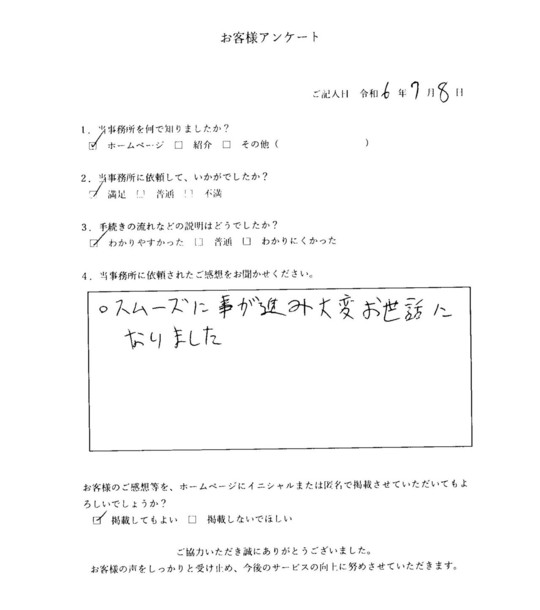 お客様アンケート
ご記入日 令和 6 年 7 月 8 日
1. 当事務所を何で知りましたか？
☑ ホームページ □ 紹介 □ その他（ ）
2. 当事務所に依頼して、いかがでしたか？
☑ 満足 □ 普通 □ 不満
3. 手続きの流れなどの説明はどうでしたか？
☑ わかりやすかった □ 普通 □ わかりにくかった
4. 当事務所に依頼されたご感想をお聞かせください。
○スムーズに事が進み大変お世話に
なりました
お客様のご感想等を、ホームページにイニシャルまたは匿名で掲載させていただいてもよ
ろしいでしょうか？
☑ 掲載してもよい □ 掲載しないでほしい
ご協力いただき誠にありがとうございました。
お客様の声をしっかりと受け止め、今後のサービスの向上に努めさせていただきます。